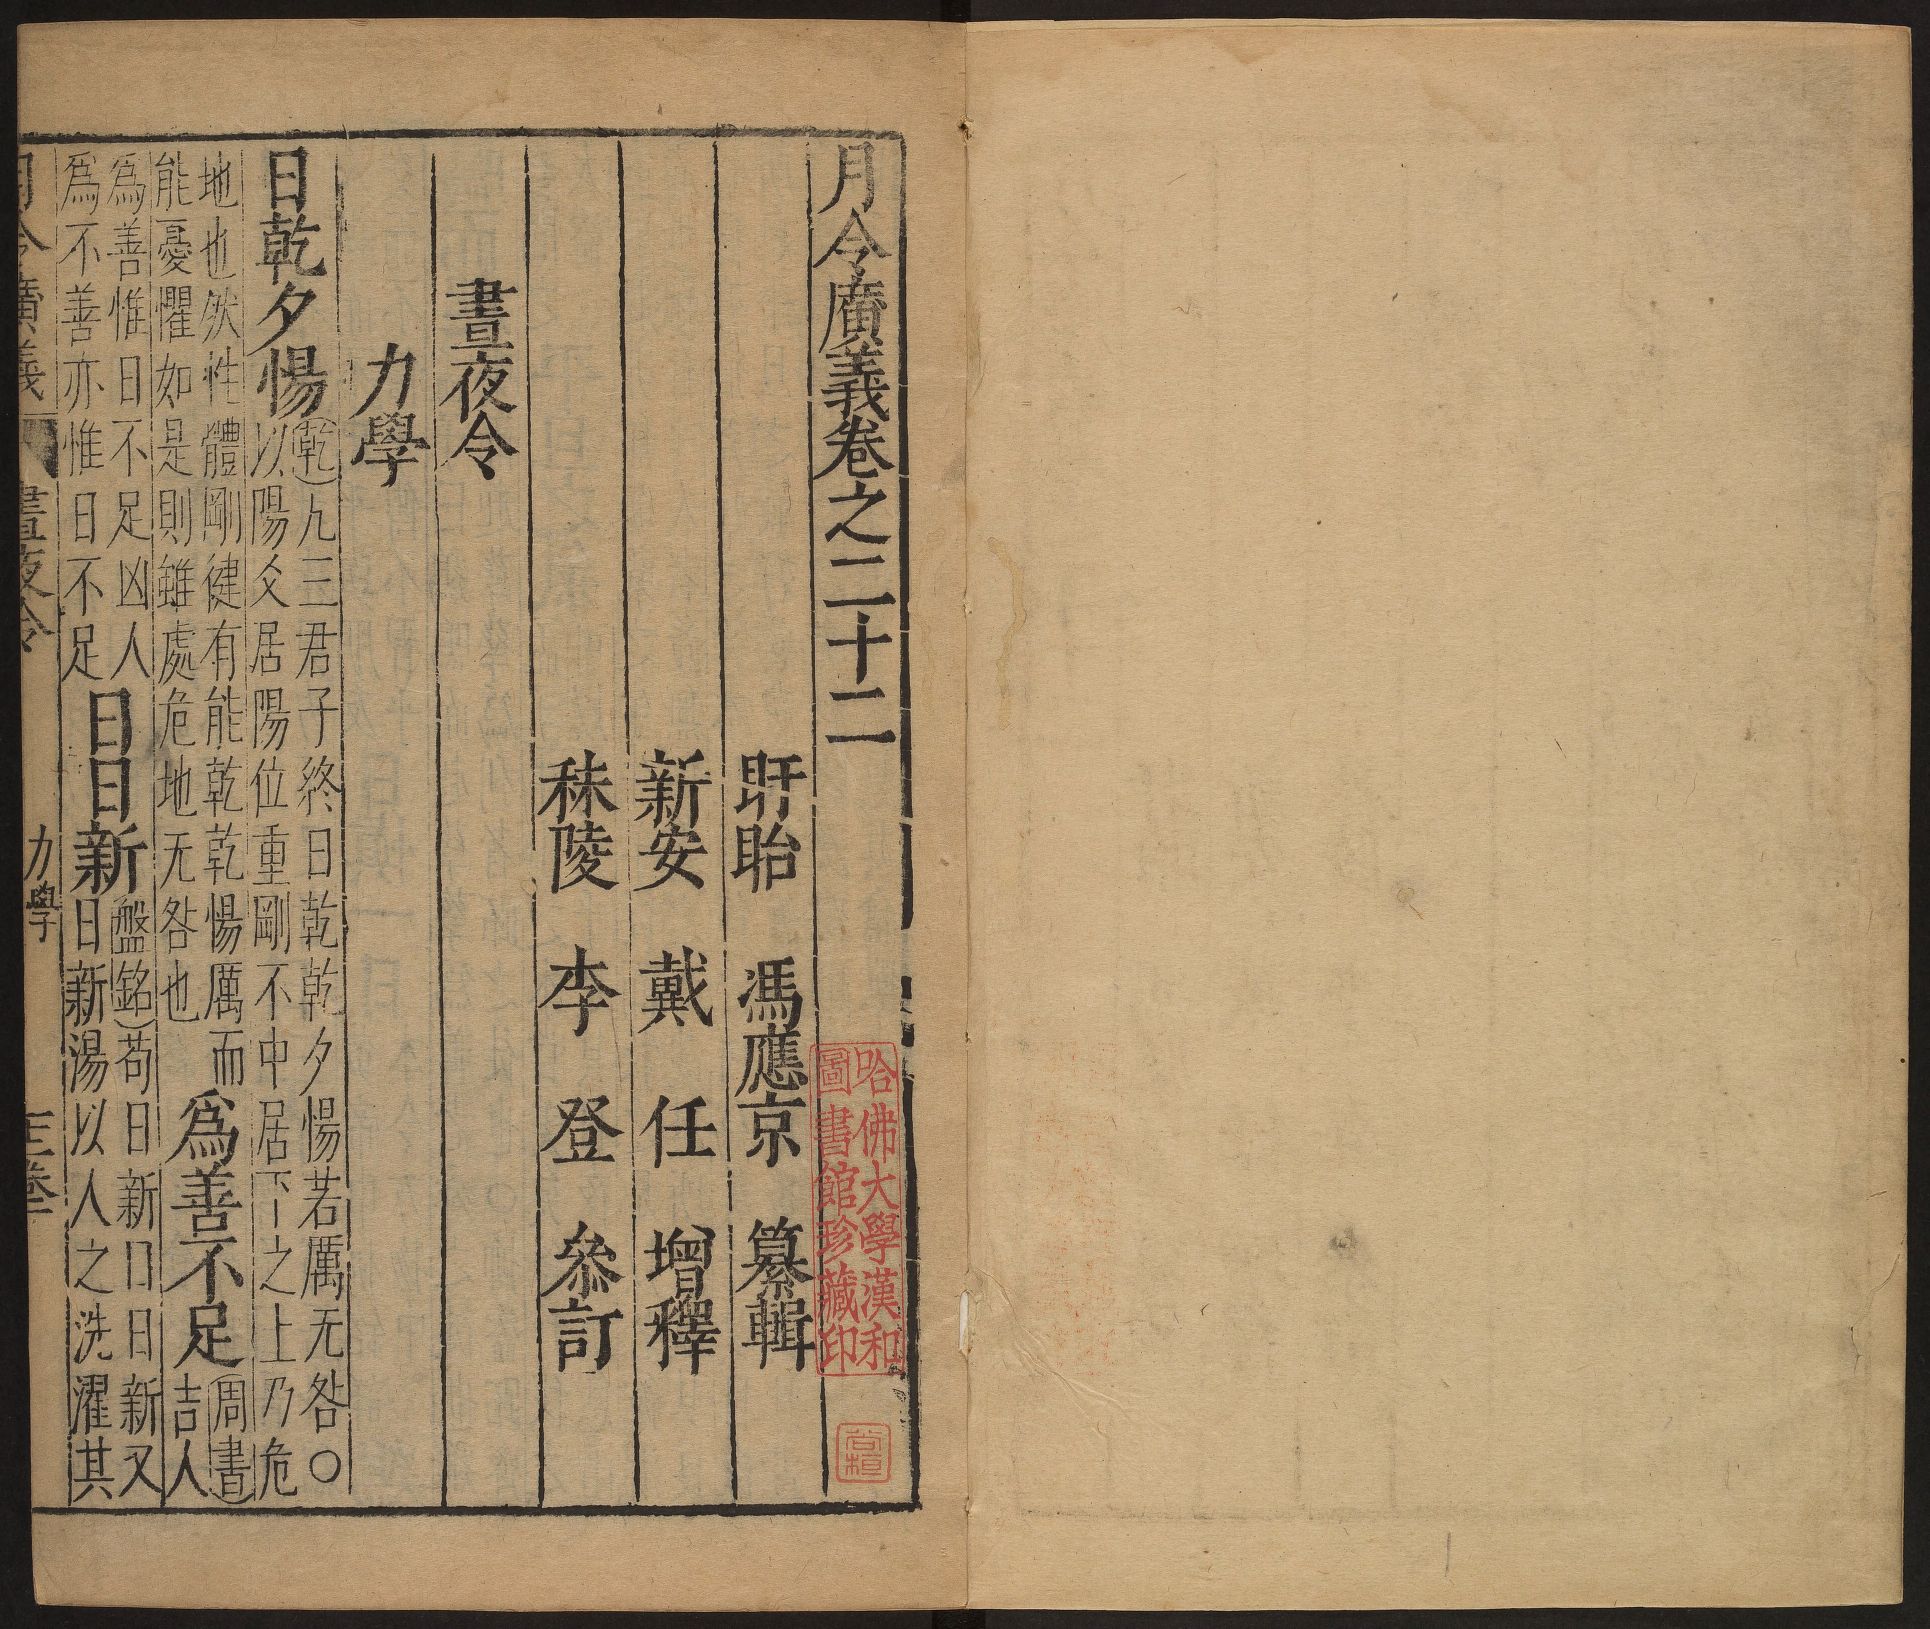 月令廣義卷之二十二
盱眙 馮應京 纂輯
新安 戴任 增釋
秣陵 李登 叅訂
晝夜令
力學
日乾夕惕
(乾)九三君子終日乾乾夕惕若厲无咎〇
以陽爻居陽位重剛不中居下之上乃危
地也然性體剛健有能乾乾惕厲而
能憂懼如是則雖處危地无咎也
爲善不足
(周書)
吉人
爲善惟日不足凶人
爲不善亦惟日不足
日日新
(盤銘)苟日新日日新又
日新湯以人之洗濯其
月令廣義
晝夜令
力學
哈佛大學漢和
圖書館珍藏印